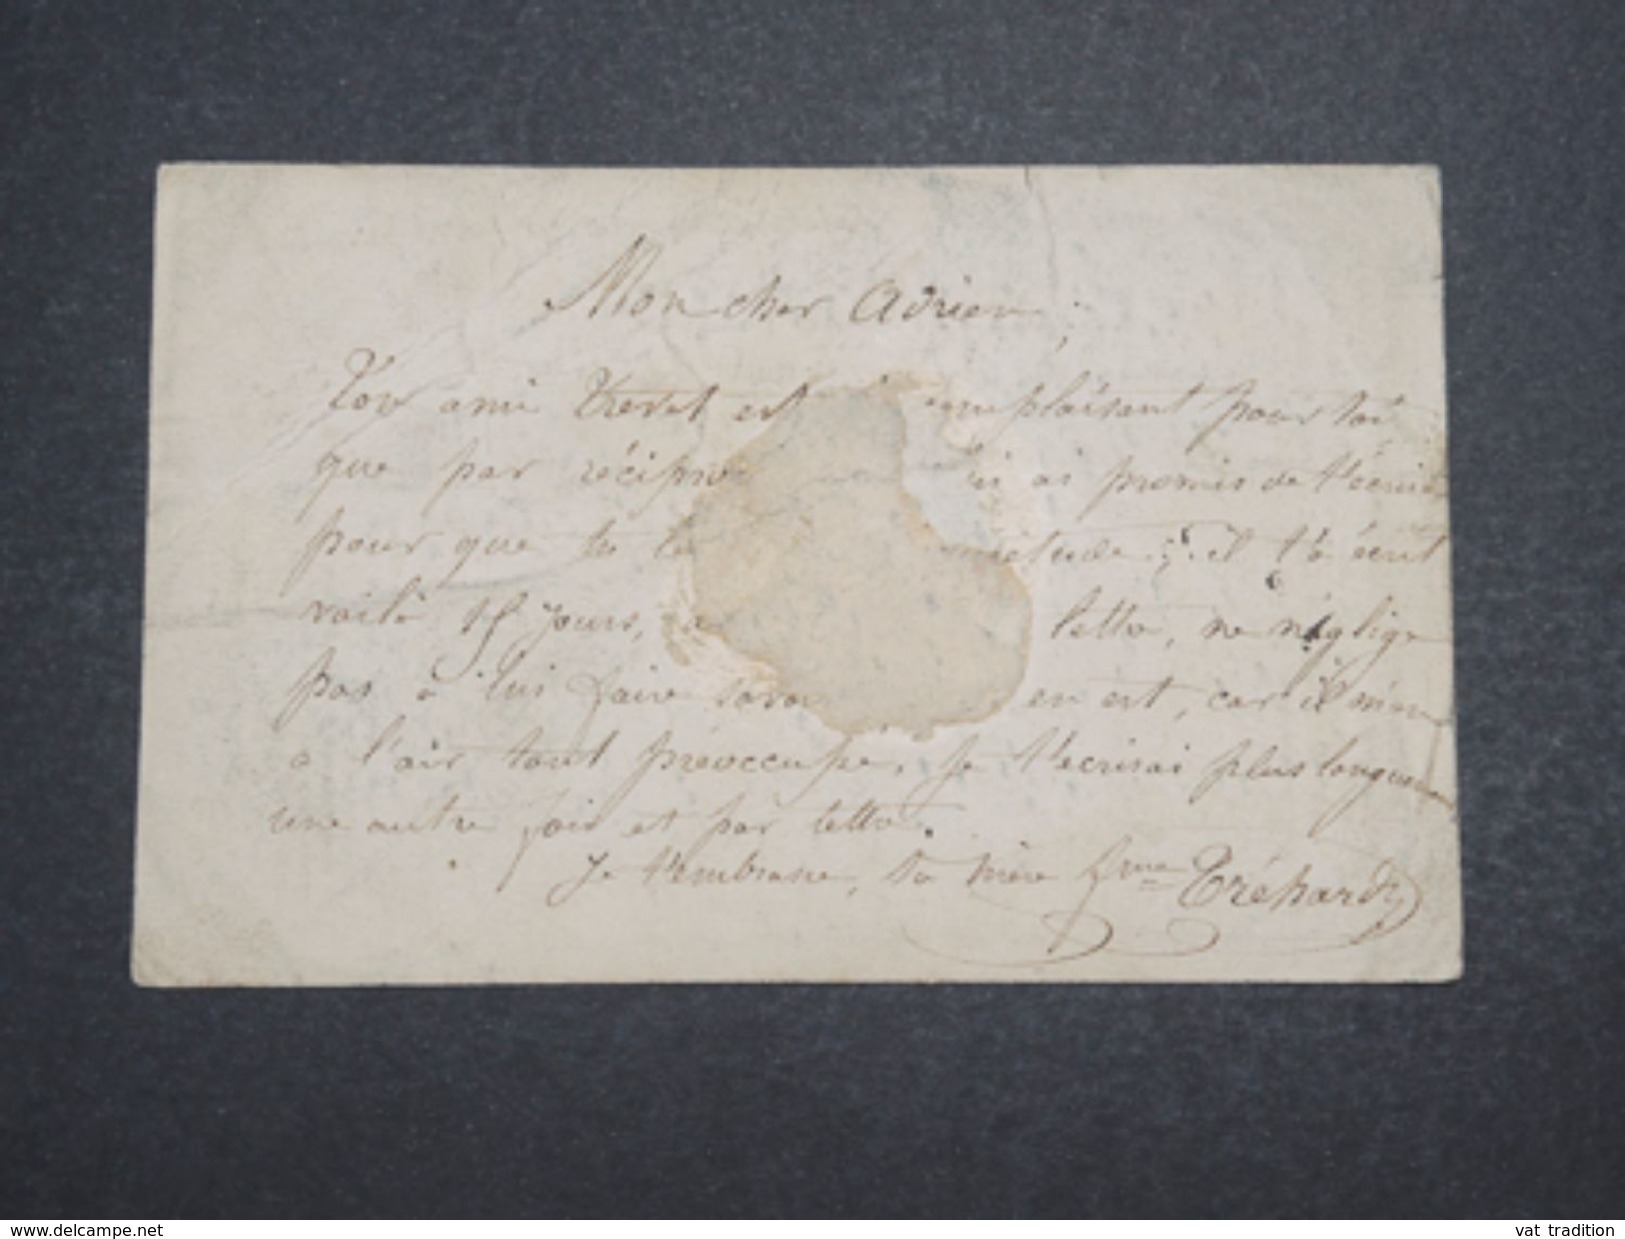 Mon cher Adrien,
Ton ami est complaisant pour toi
que par ai promis de t'écrire
pour que tu il t'a écrit
voilà 15 jours, lettre, ne néglige
pas à lui faire en est, car il m'en
a l'air tout préoccupé, je t'ecrirai plus longuem
une autre fois et par lettre.
Je t'embrasse, ta mère fme Tréhard
delcampe.net
vat tradition